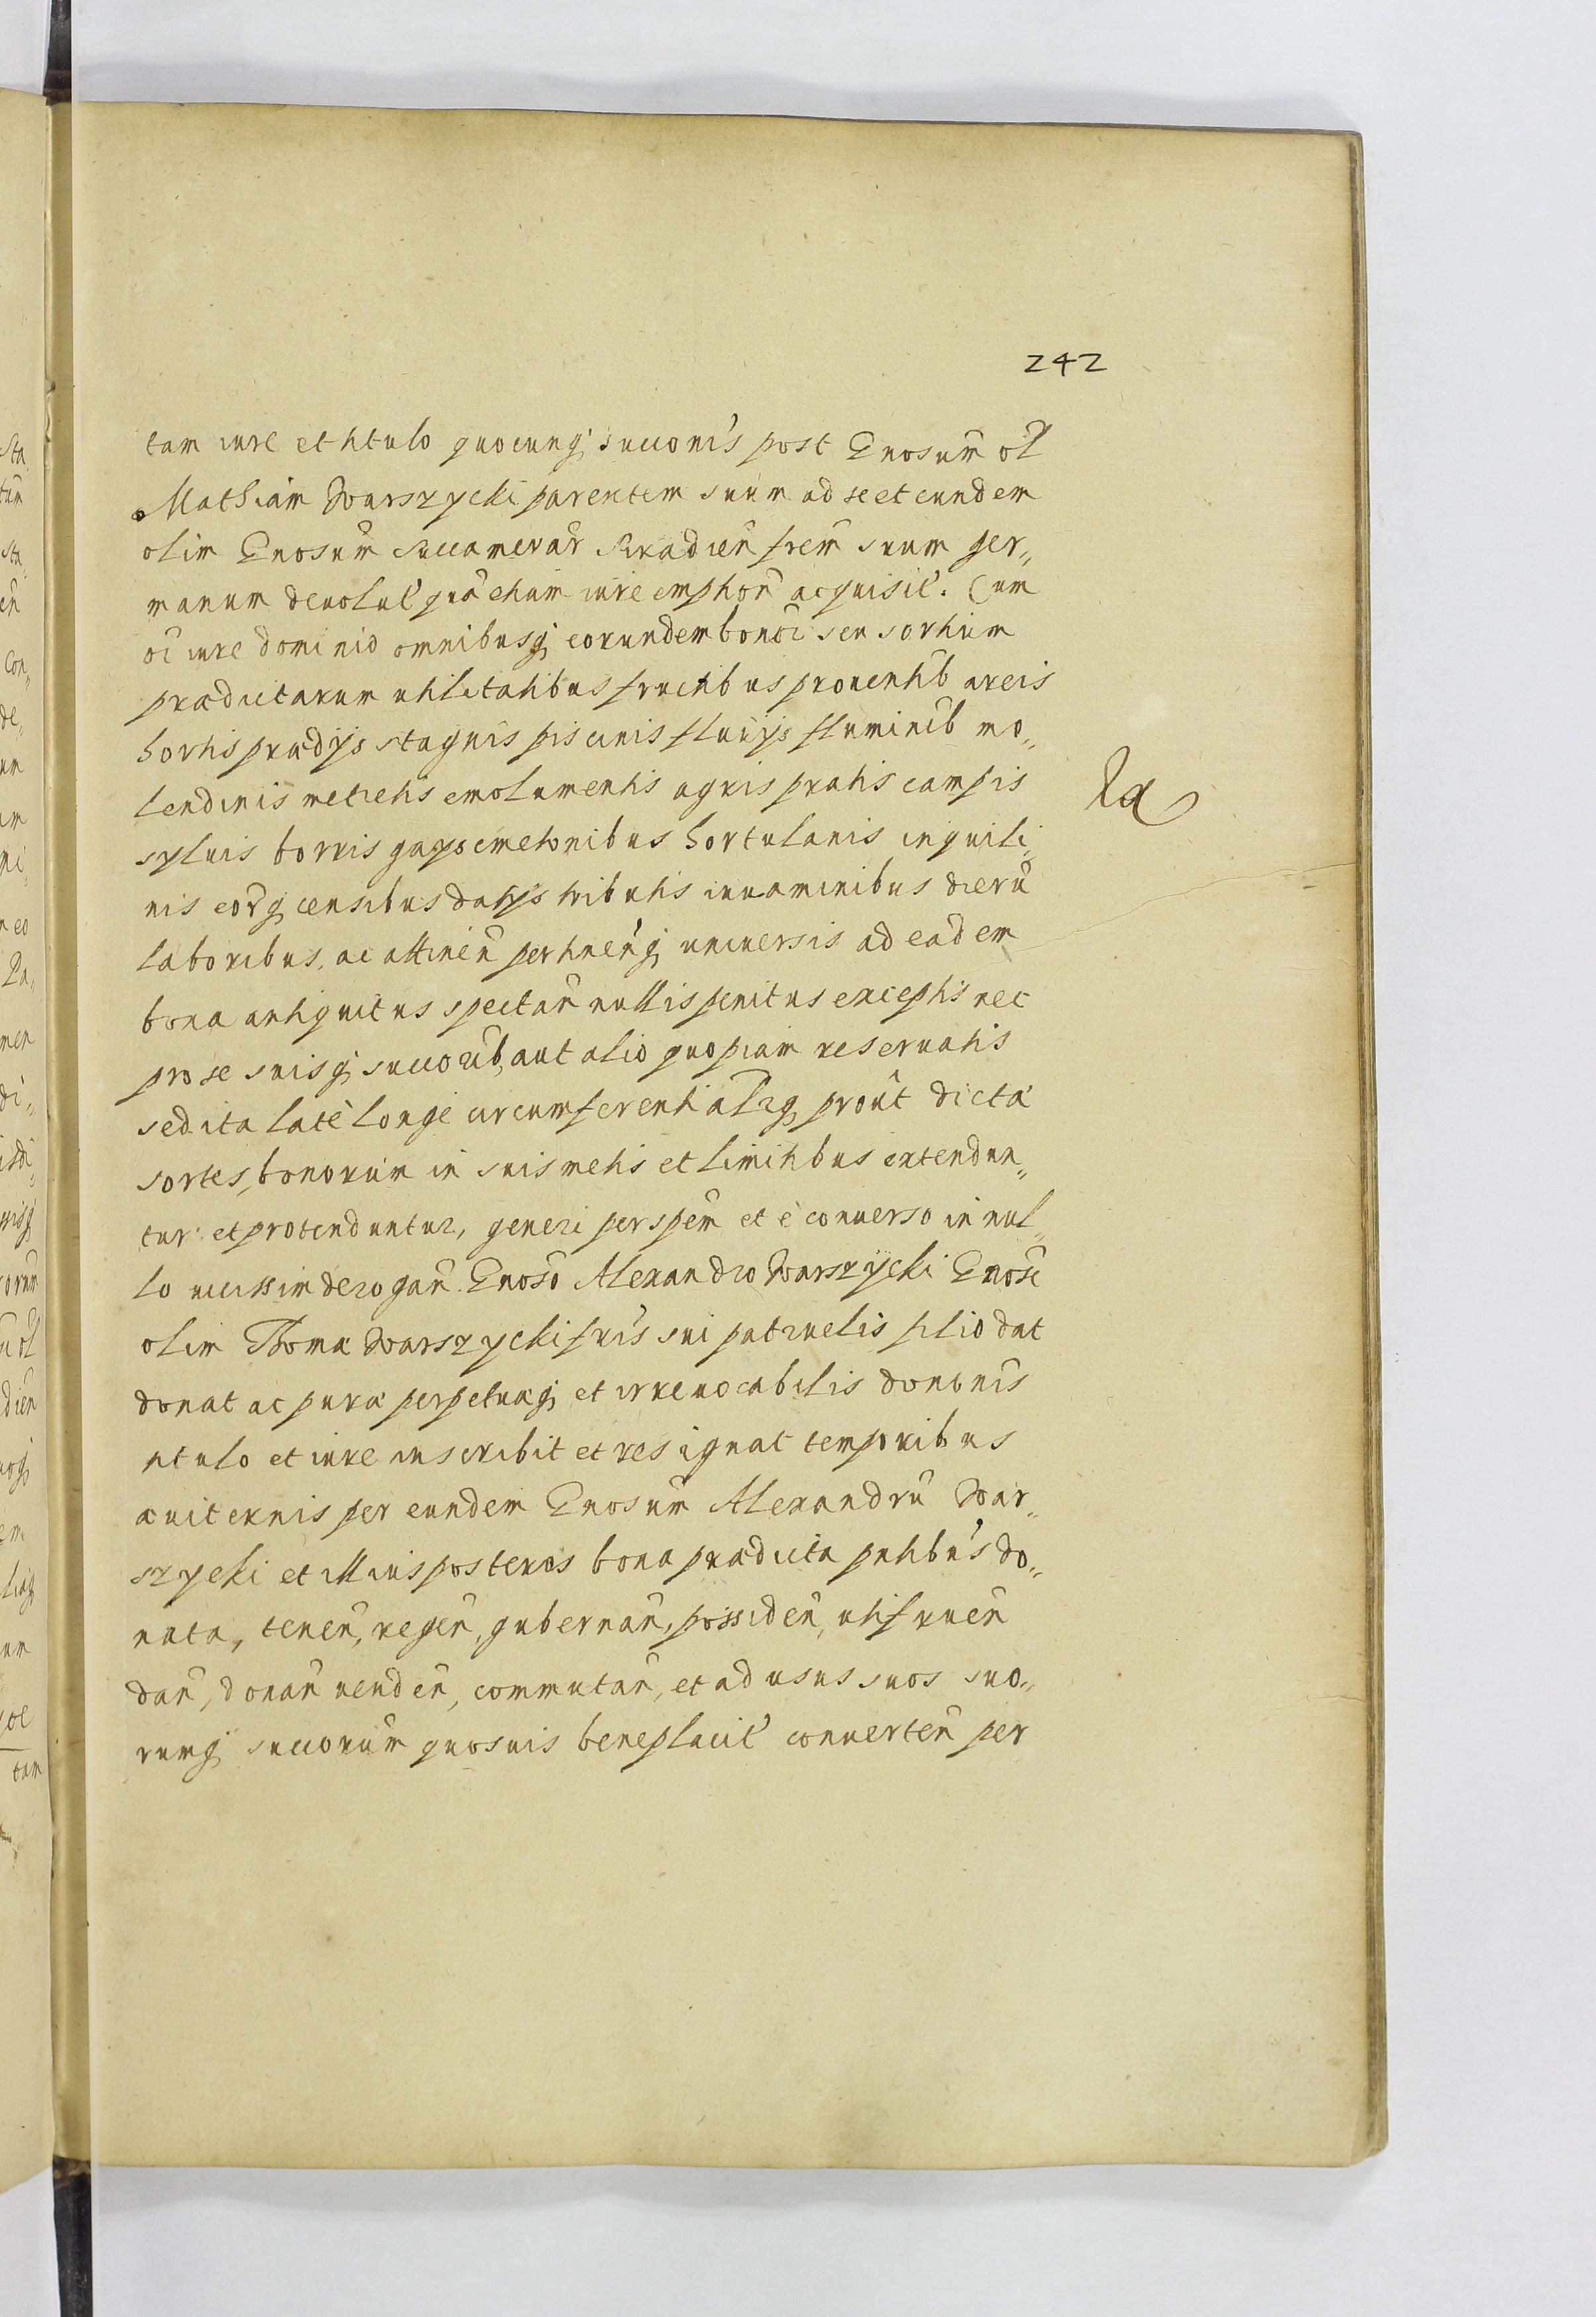 242
tam iure et titulo quocunq; succonis post Gnosum ol
Mathiam Warszycki parentem suum ad se et eundem
olim Gnosum Succamerar Siradien frem suum ger„
manum devolut qua etiam iure emphon acquisit. Cum
oi iure dominio omnibusq; eorundem bonor seu sortium
prædictarum utilitatibus fructibus prouentib areis
hortis prædijs stagnis piscinis fluvijs fluminib mo„
lendinis metretis emolumentis agris pratis campis
syluis borris gajis cmetonibus hortulanis inquili„
nis eorq; censibus datijs tributis iuuaminibus dieru
laboribus, ac attinen pertinenq; uniuersis ad eadem
bona antiquitus spectan nullis penitus exceptis nec
pro se suisq; succorib, aut alio quopiam reseruatis
sed ita late longe circumferentialrq; prout dicta
sortes, bonorum in suis metis et limitibus extendun„
tur et protenduntur, generi per spem et e conuerso in nul„
lo uicissim derogan. Gnoso Alexandro Warszycki Gnosi
olim Thomæ Warszycki fris sui patruelis filio dat
donat ac puræ perpetuæq; et irreuocabilis donõnis
titulo et iure inscribit et resignat temporibus
æuiternis per eundem Gnosum Alexandru War„
szycki et illius posteros bona prædicta pntibus do„
nata, tenen, regen, gubernan, possiden, utifruen
dan, donan uenden, commutan, et ad usus suos suo„
rumq; succorum quosuis beneplacit conuerten per